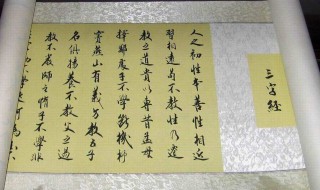 三字經
人之初性本善性相近
習相遠苟不教性乃遷
教之道貴以專昔孟母
擇鄰處子不學斷機杼
竇燕山有義方教五子
名俱揚養不教父之過
教不嚴師之惰子不學非
不學老何為